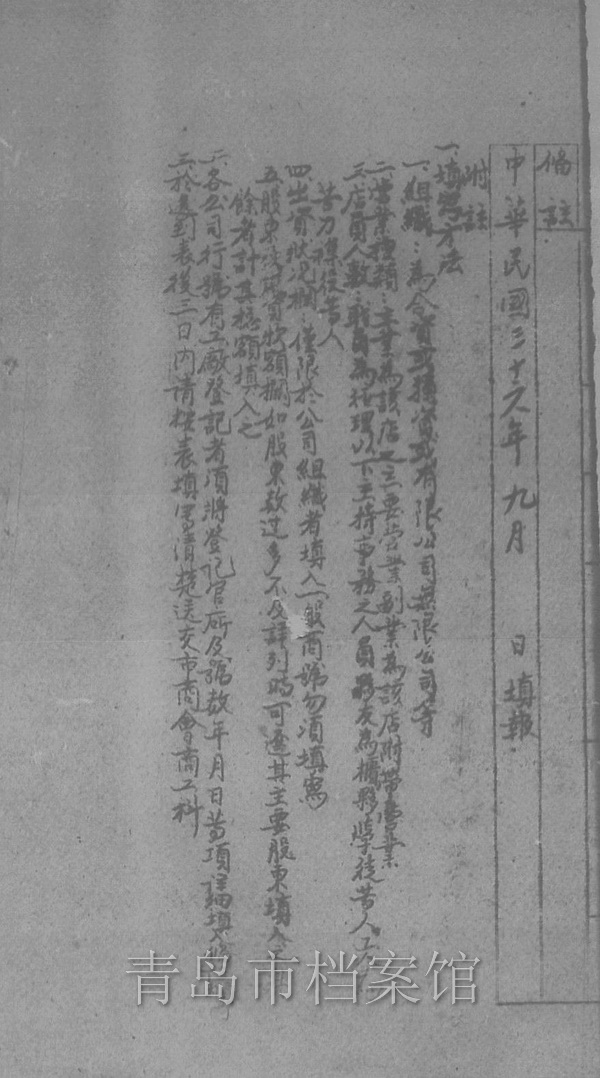 備註
中華民國三十六年九月　日填報
附註
一、填寫方法
一、組織：為合資或獨資或有限公司無限公司等
二、營業種類：主業為該店之主要營業副業為該店附帶營業
三、店員人數：職員為經理以下主持事務之人員夥友為櫃夥學徒苦人工
苦力雜役苦人
四、出資狀況欄：僅限於公司組織者填入一般商號勿須填寫
五、股東資額欄如股東數过多不及詳列時可選其主要股東填入
餘者計其總額填入之
二、各公司行號有工廠登記者須將登記官所及號数年月日等項詳細填入
三、於送到表後三日内請按表填寫清楚送交市商會商工科
青岛市档案馆